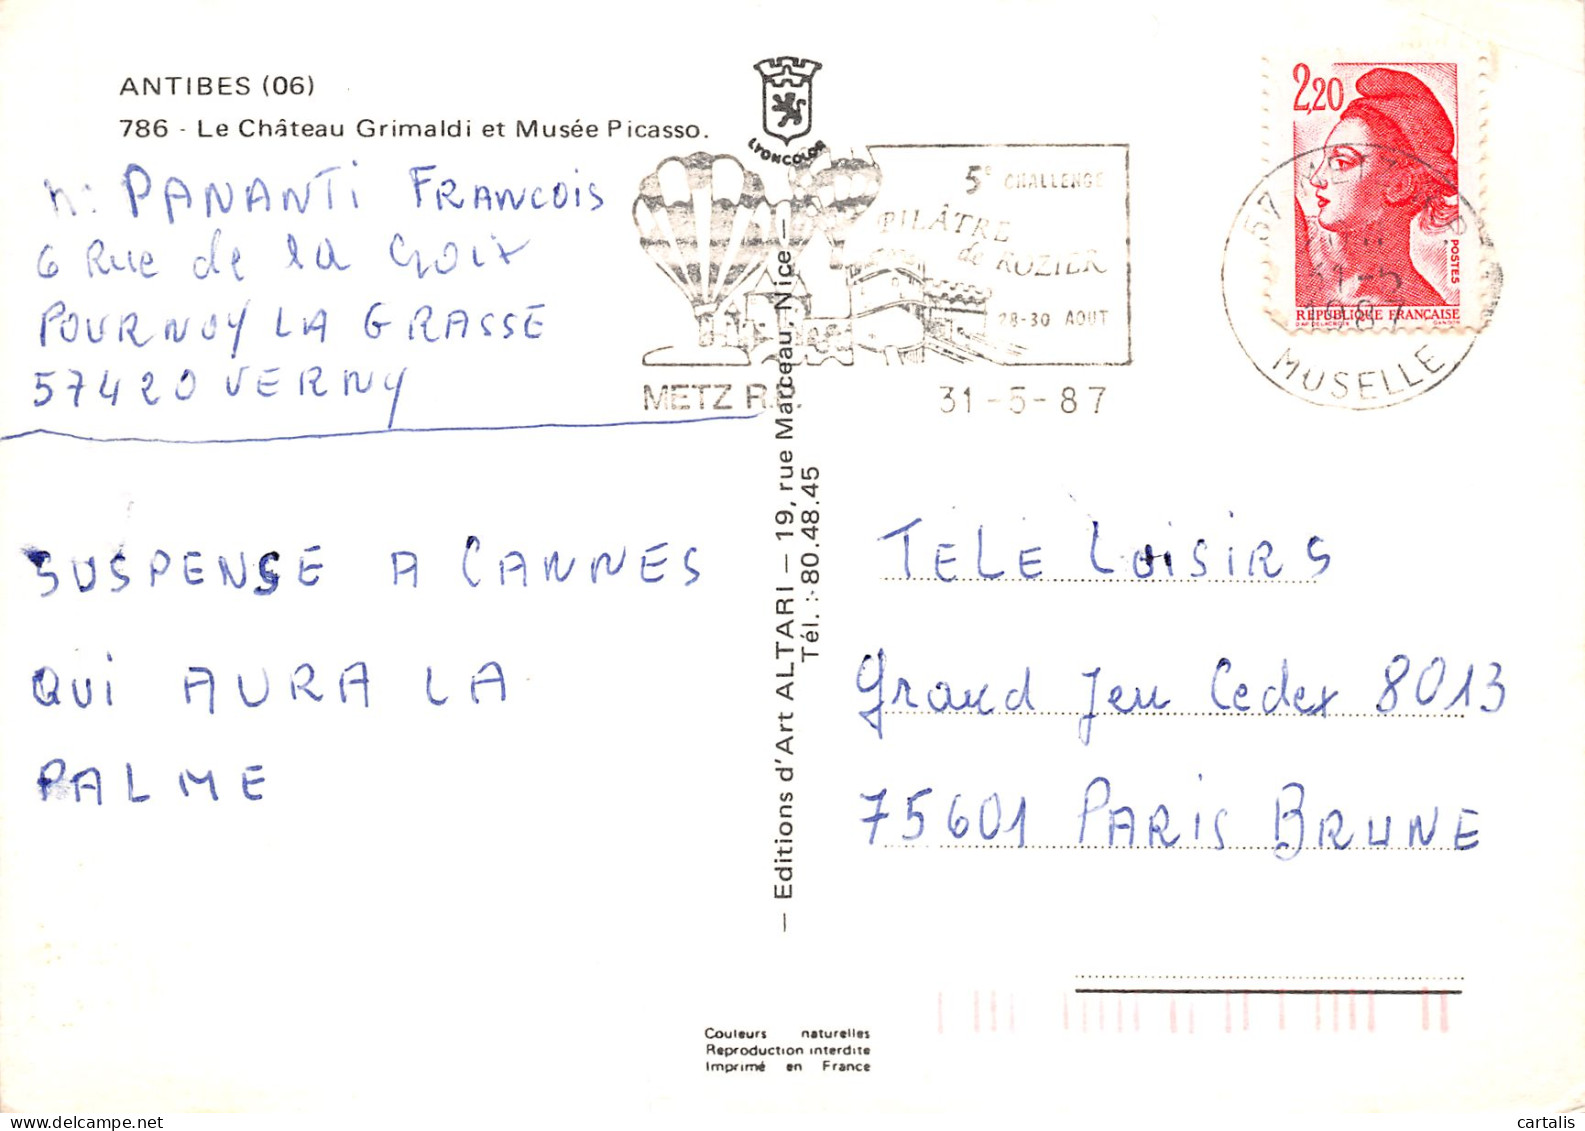 ANTIBES (06)
786 - Le Château Grimaldi et Musée Picasso.
LYONCOLOR
PANANTI FRANCOIS
6 Rue de la Croix
POURNOY LA GRASSE
57420 VERNY
SUSPENSE A CANNES
QUI AURA LA
PALME
5e CHALLENGE
PILÂTRE
de ROZIER
28-30 AOUT
METZ R.P.
31-5-87
2,20
POSTES
RÉPUBLIQUE FRANÇAISE
D'AP. DELACROIX GANDON
57 METZ R.P.
31-5
1987
MOSELLE
— Editions d'Art ALTARI — 19, rue Marceau, Nice —
Tél. : 80.48.45
TELE LOISIRS
Grand Jeu Cedex 8013
75601 PARIS BRUNE
Couleurs naturelles
Reproduction interdite
Imprimé en France
cartalis